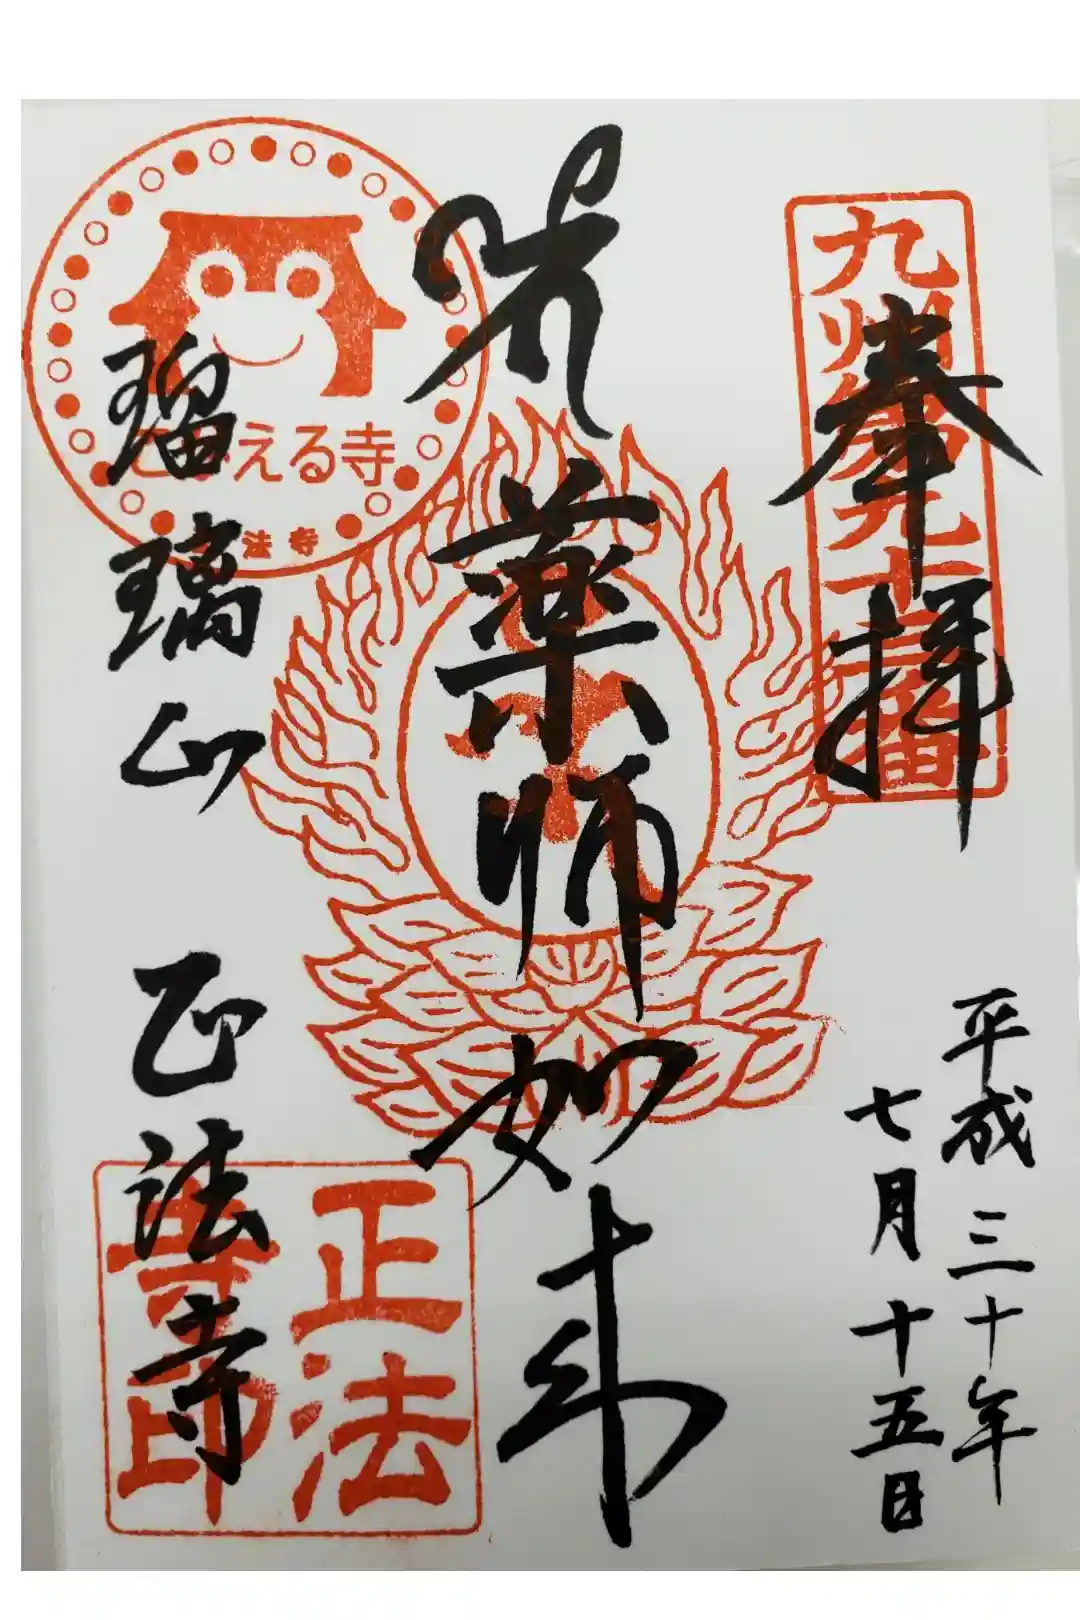 奉拝
九州第九十七番
平成三十年
七月十五日
薬師如来
かえる寺
法寺
瑠璃山 正法寺
正法
寺印